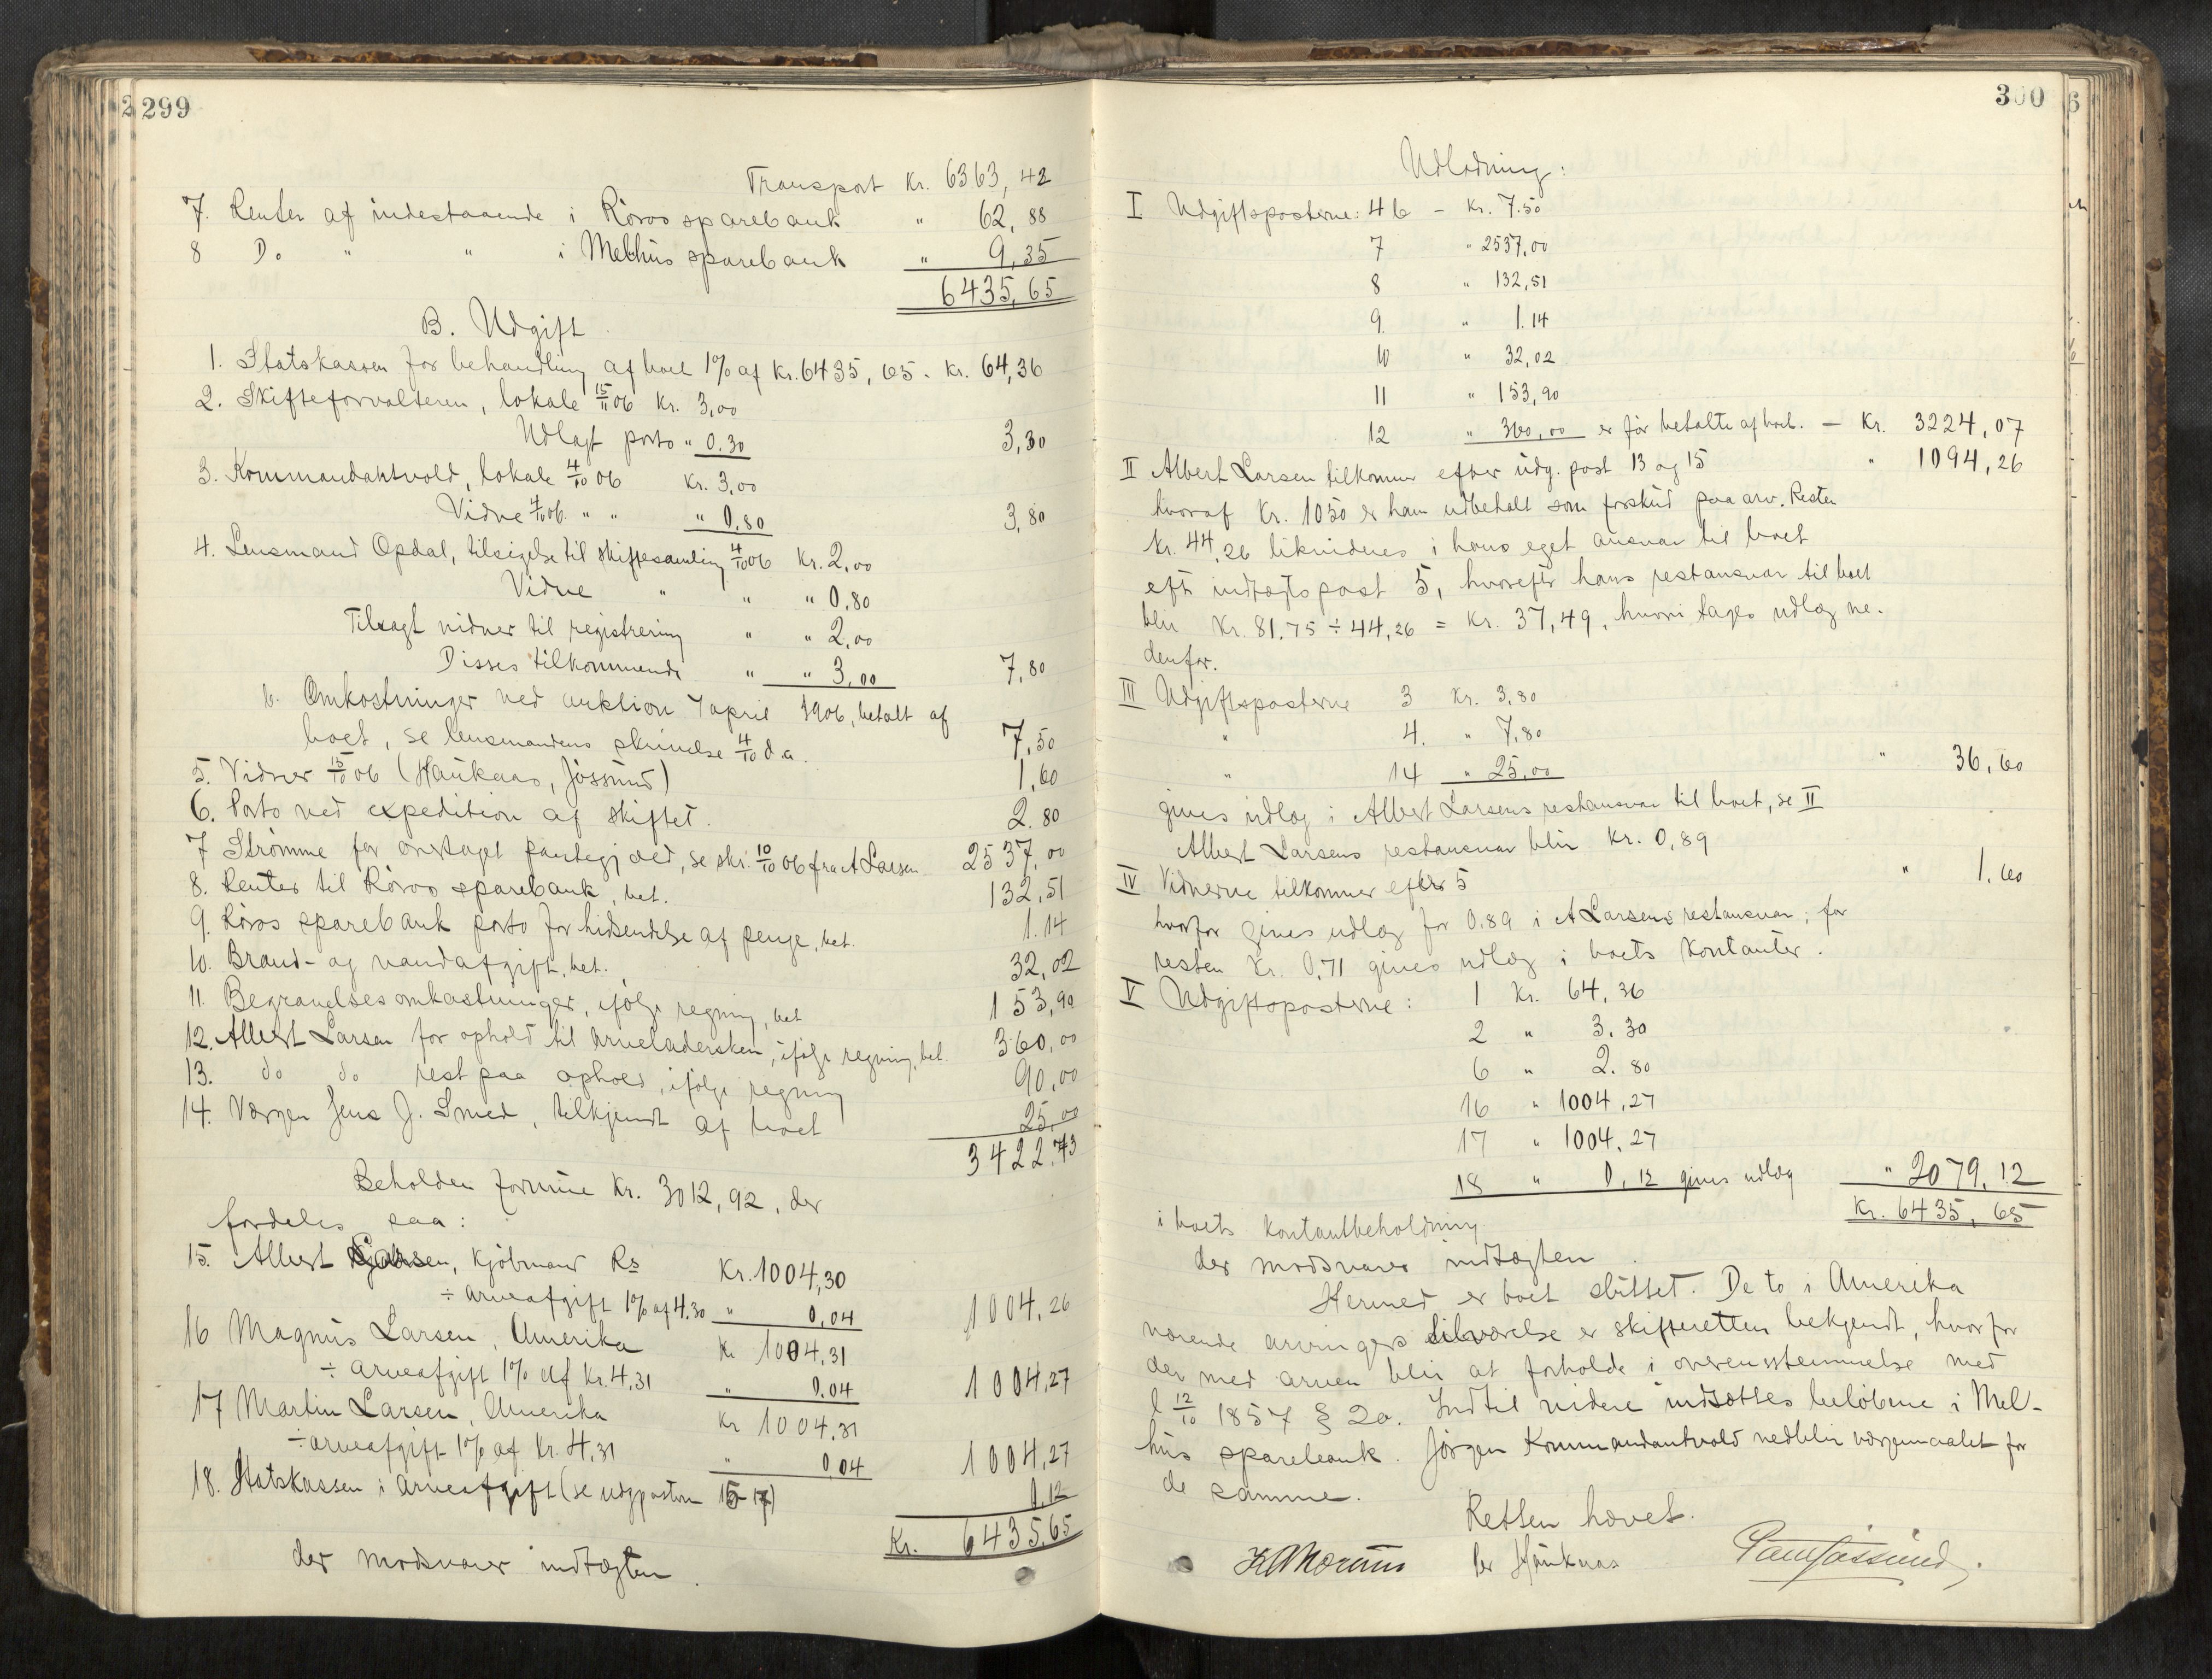 299
Transport Kr. 6363,42
7. Renter af indestaaende i Röros sparebank " 62,88
8 Do " " i Melhus sparebank " 9,35
6435,65
B. Udgift
1. Statskassen for behandling af boet 1% af Kr. 6435,65 - Kr. 64,36
2. Skifteforvalteren, lokale 15/11 06 Kr. 3,00
Udlagt porto " 0.30 3,30
3. Kommandantvold, lokale 4/10 06 Kr. 3,00
Vidne 4/10 06 " " " 0,80 3,80
4. Lensmand Opdal, tilsigelse til skiftesamling 4/10 06 Kr. 2,00
Vidne " " " 0,80
Tilsagt vidner til registrering " " 2,00
Disses tilkommende " " 3,00 7,80
b. Omkostninger ved auktion 7 april 1906, betalt af
boet, se lensmandens skrivelse 4/10 d.a. 7,50
5. Vidner 15/10 06 (Haukaas, Jössund) 1,60
6. Porto ved expedition af skiftet. 2.80
7 Strömme for overtaget pantegjæld, se skr. 10/10 06 fra A Larsen 2537,00
8. Renter til Röros sparebank, bet. 132,51
9. Röros sparebank porto for hidsendelse af penge, bet. 1.14
10. Brand- og vandafgift, bet. 32,02
11. Begravelsesomkostninger, ifölge regning, bet 153,90
12. Albert Larsen for ophold til arveladersken, ifölge regning, bet. 360,00
13. do do rest paa ophold, ifölge regning 90,00
14. Værgen Jens J. Smed, tilkjendt af boet 25,00
3422,73
Beholden formue Kr. 3012,92, der
fordeles paa:
15. Albert Larsen, Kjöbmand Rs Kr. 1004,30
÷ arveafgift 1% af 4.30 " 0,04 1004,26
16 Magnus Larsen, Amerika Kr 1004,31
÷ arveafgift 1% af Kr. 4,31 " 0.04 1004,27
17 Martin Larsen, Amerika Kr 1004,31
÷ arveafgift 1% af Kr. 4,31 " 0,04 1004,27
18. Statskassen i arveafgift (se udgposten 15-17) 0,12
Kr. 6435,65
der modsvarer indtægten.
300
Udlodning:
I Udgiftsposterne: 4b - Kr. 7.50
7 " 2537,00
8 " 132,51
9 " 1.14
10 " 32,02
11 " 153,90
12 " 360,00 er för betalte af boet. - Kr. 3224,07
II Albert Larsen tilkommer efter udg. post 13 og 15 " 1094,26
hvoraf Kr. 1050 er ham udbetalt som forskud paa arv. Resten
Kr. 44,26 likvideres i hans eget ansvar til boet
eft indtægtspost 5, hvorefter hans restansvar til boet
blir Kr. 81.75 ÷ 44,26 = Kr. 37,49, hvori tages udlæg ne-
denfor.
III Udgiftsposterne 3 Kr. 3,80
" 4. " 7,80
" 14 " 25,00 " 36,60
gives udlæg i Albert Larsens restansvar til boet, se II
Albert Larsens restansvar blir Kr. 0,89
IV Vidnerne tilkommer efter 5 " 1.60
hvorfor gives udlæg for 0.89 i A Larsens restansvar; for
resten Kr. 0,71 gives udlæg i boets kontanter.
V Udgiftsposterne: 1 Kr. 64,36
2 " 3.30
6 " 2.80
16 " 1004,27
17 " 1004,27
18 " 0,12 gives udlæg " 2079,12
i boets kontantbeholdning Kr. 6435,65
der modsvarer indtægten.
Hermed er boet sluttet. De to i Amerika
værende arvingers tilværelse er skifteretten bekjendt, hvorfor
der med arven blir at forholde i overensstemmelse med
l 12/10 1857 § 20. Indtil videre indsættes belöbene i Mel-
hus sparebank. Jörgen Kommandantvold vedblir værgemaalet for
de samme.
Retten hævet.
Per Haukaas